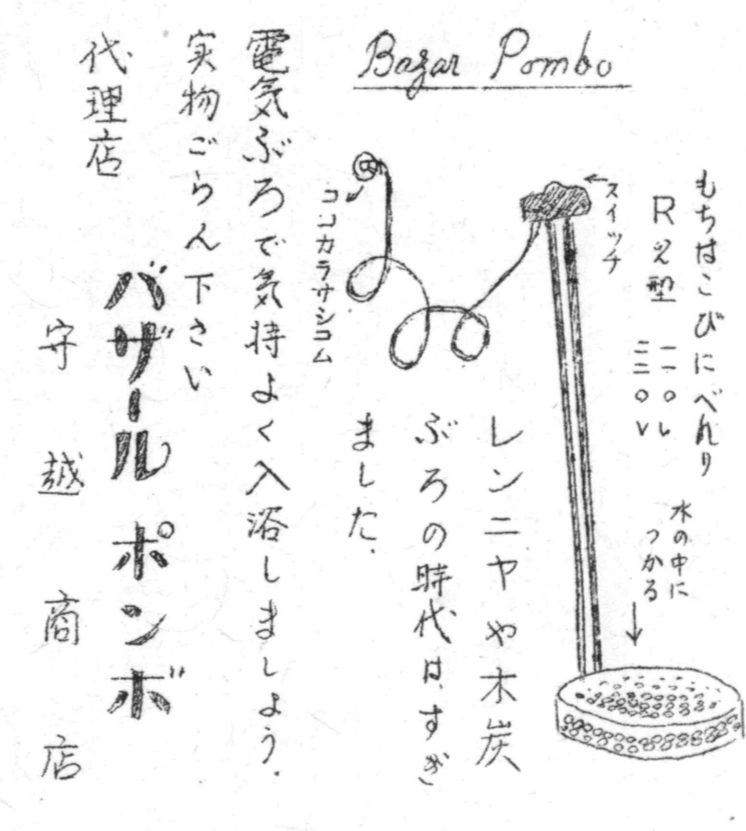 Bazar Pombo
もちはこびにべんり
型
一一〇V
二二〇V
スイッチ
水の中に
つかる
ココカラサシコム
レンニヤや木炭
ぶろの時代は、すぎ
ました.
電気ぶろで気持よく入浴しましょう.
実物ごらん下さい
代理店
バザール ポンボ
守越商店